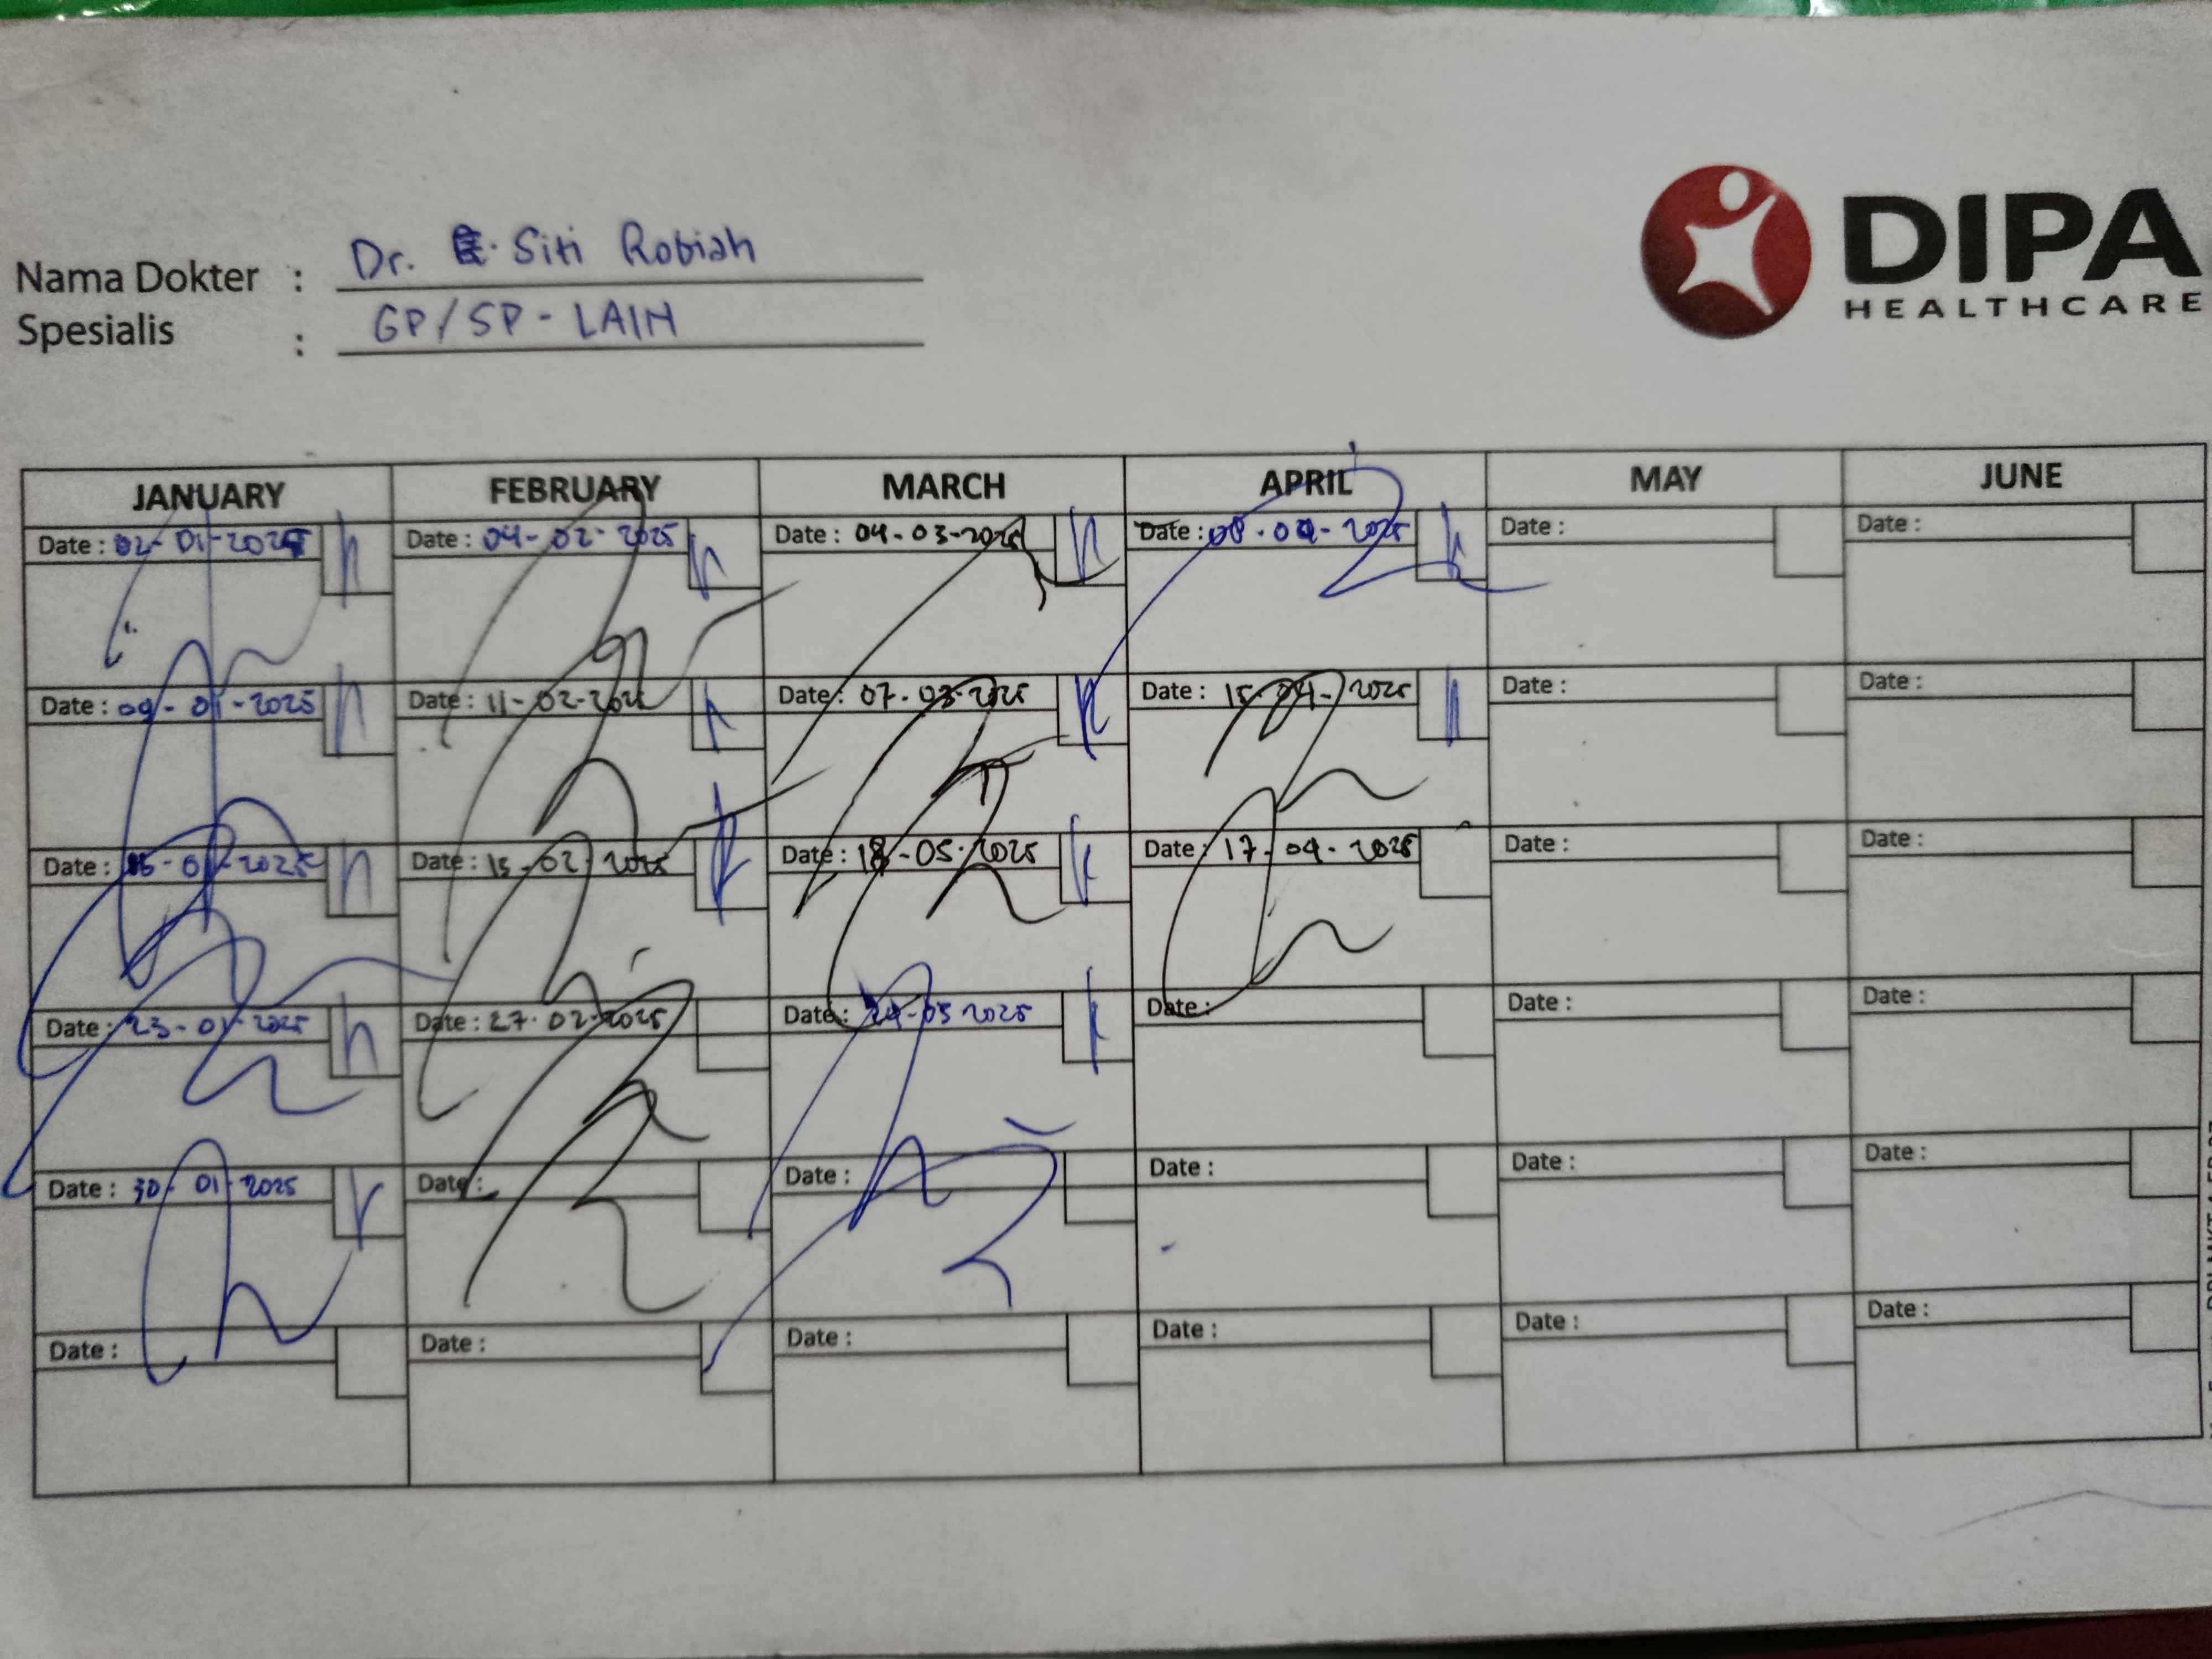 DIPA
HEALTHCARE
Nama Dokter : Dr. Siti Robiah
Spesialis : GP/SP-LAIN
JANUARY FEBRUARY MARCH APRIL MAY JUNE
Date : 02-01-2025 Date : 04-02-2025 Date : 04-03-2025 Date : 08-04-2025 Date : Date :
Date : 09-01-2025 Date : 11-02-2025 Date : 07-03-2025 Date : 15-04-2025 Date : Date :
Date : 16-01-2025 Date : 15-02-2025 Date : 18-03-2025 Date : 17-04-2025 Date : Date :
Date : 23-01-2025 Date : 27-02-2025 Date : 24-03-2025 Date : Date : Date :
Date : 30-01-2025 Date : Date : Date : Date : Date :
Date : Date : Date : Date : Date : Date :